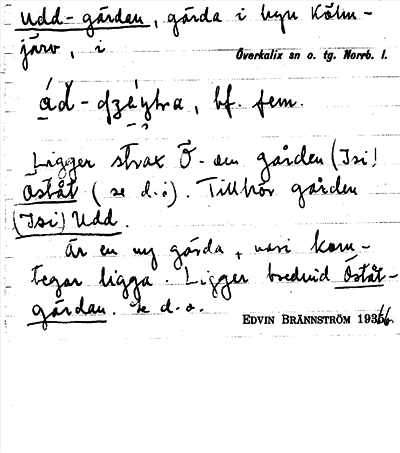 Udd-gärdan, gärda i byn Kölm-
järv, i
Överkalix sn o. tg. Norrb. l.
bf. fem.
Ligger strax Ö. om gården (Isi)
Oståt (se d.o.). Tillhör gården
(Isi) Udd.
Är en ny gärda, vari korn-
tegar ligga. Ligger bredvid Oståt-
gärdan. se d.o.
EDVIN BRÄNNSTRÖM 1936